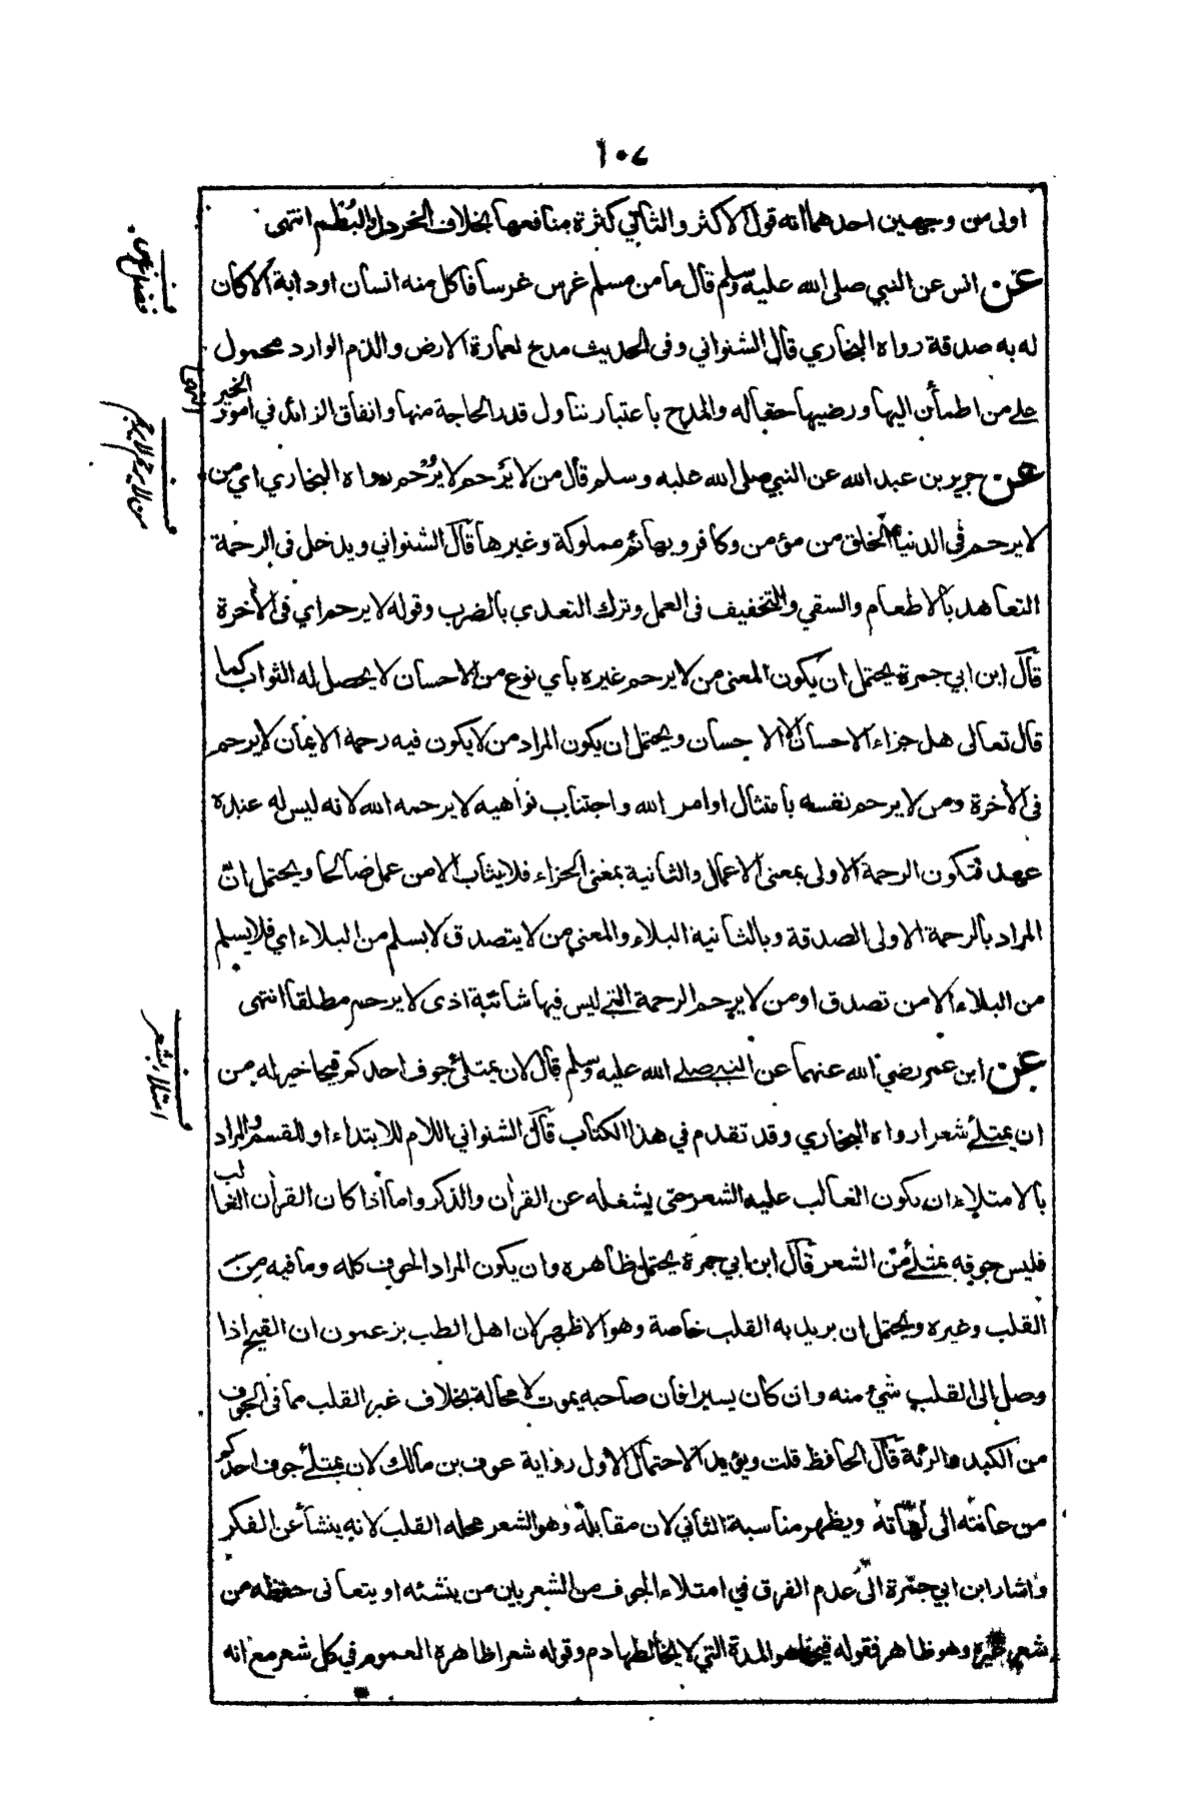 ١٠٧
اولى من وجهين احدهما انه قول الاكثر والثاني كثرة منافعها بخلاف الخردل والبطم انتهى
عن انس عن النبي صلى الله عليه وسلم قال ما من مسلم غرس غرسا فاكل منه انسان او دابة الا كان
له به صدقة رواه البخاري قال الشنواني وفى الحديث مدح لعمارة الارض والذم الوارد محمول
على من اطمأن اليها ورضيها حقباله والمدح باعتبار تناول قدر الحاجة منها وانفاق الزائد في امور الخير انتهى
عن جرير بن عبد الله عن النبي صلى الله عليه وسلم قال من لا يَرْحم لا يُرْحم رواه البخاري اي من
لا يرحم في الدنيا الخلق من مؤمن وكافر وبهائم مملوكة وغيرها قال الشنواني ويدخل فى الرحمة
التعاهد بالاطعام والسقي والتخفيف فى العمل وترك التعدي بالضرب وقوله لا يرحم اي فى الآخرة
قال ابن ابي جمرة يحتمل ان يكون المعنى من لا يرحم غيره باي نوع من الاحسان لا يحصل له الثواب كما
قال تعالى هل جزاء الاحسان الا الاحسان ويحتمل ان يكون المراد من لا يكون فيه رحمة الايمان لا يرحم
فى الآخرة ومن لا يرحم نفسه بامتثال اوامر الله واجتناب نواهيه لا يرحمه الله لانه ليس له عنده
عهد فتكون الرحمة الاولى بمعنى الاعمال والثانية بمعنى الجزاء فلا يثاب الا من عمل صالحا ويحتمل ان
المراد بالرحمة الاولى الصدقة وبالثانية البلاء والمعنى من لا يتصدق لا يسلم من البلاء اي فلا يسلم
من البلاء الا من تصدق او من لا يرحم الرحمة التي ليس فيها شائبة اذى لا يرحم مطلقا انتهى
عن ابن عمر رضي الله عنهما عن النبي صلى الله عليه وسلم قال لان يمتلئ جوف احدكم قيحا خير له من
ان يمتلئ شعرا رواه البخاري وقد تقدم في هذا الكتاب قال الشنواني اللام للابتداء او للقسم والمراد
بالامتلاء ان يكون الغالب عليه الشعر حتى يشغله عن القرآن والذكر واما اذا كان القرآن الغالب
فليس جوفه بممتلئ من الشعر قال ابن ابي جمرة يحتمل ظاهره وان يكون المراد الجوف كله وما فيه من
القلب وغيره ويحتمل ان يريد به القلب خاصة وهو الاظهر لان اهل الطب يزعمون ان القيح اذا
وصل الى القلب شيء منه وان كان يسيرا فان صاحبه يموت لا محالة بخلاف غير القلب مما فى الجوف
من الكبد والرئة قال الحافظ قلت ويؤيد الاحتمال الاول رواية عوف بن مالك لان يمتلئ جوف احدكم
من عانته الى لهاته ويظهر مناسبة الثاني لان مقابله وهو الشعر محله القلب لانه ينشأ عن الفكر
واشار ابن ابي جمرة الى عدم الفرق في امتلاء الجوف من الشعر بين من ينشئه او يتعانى حفظه من
شعر غيره وهو ظاهر فقوله قيحا هو المدة التي لا يخالطها دم وقوله شعرا ظاهره العموم في كل شعر مع انه